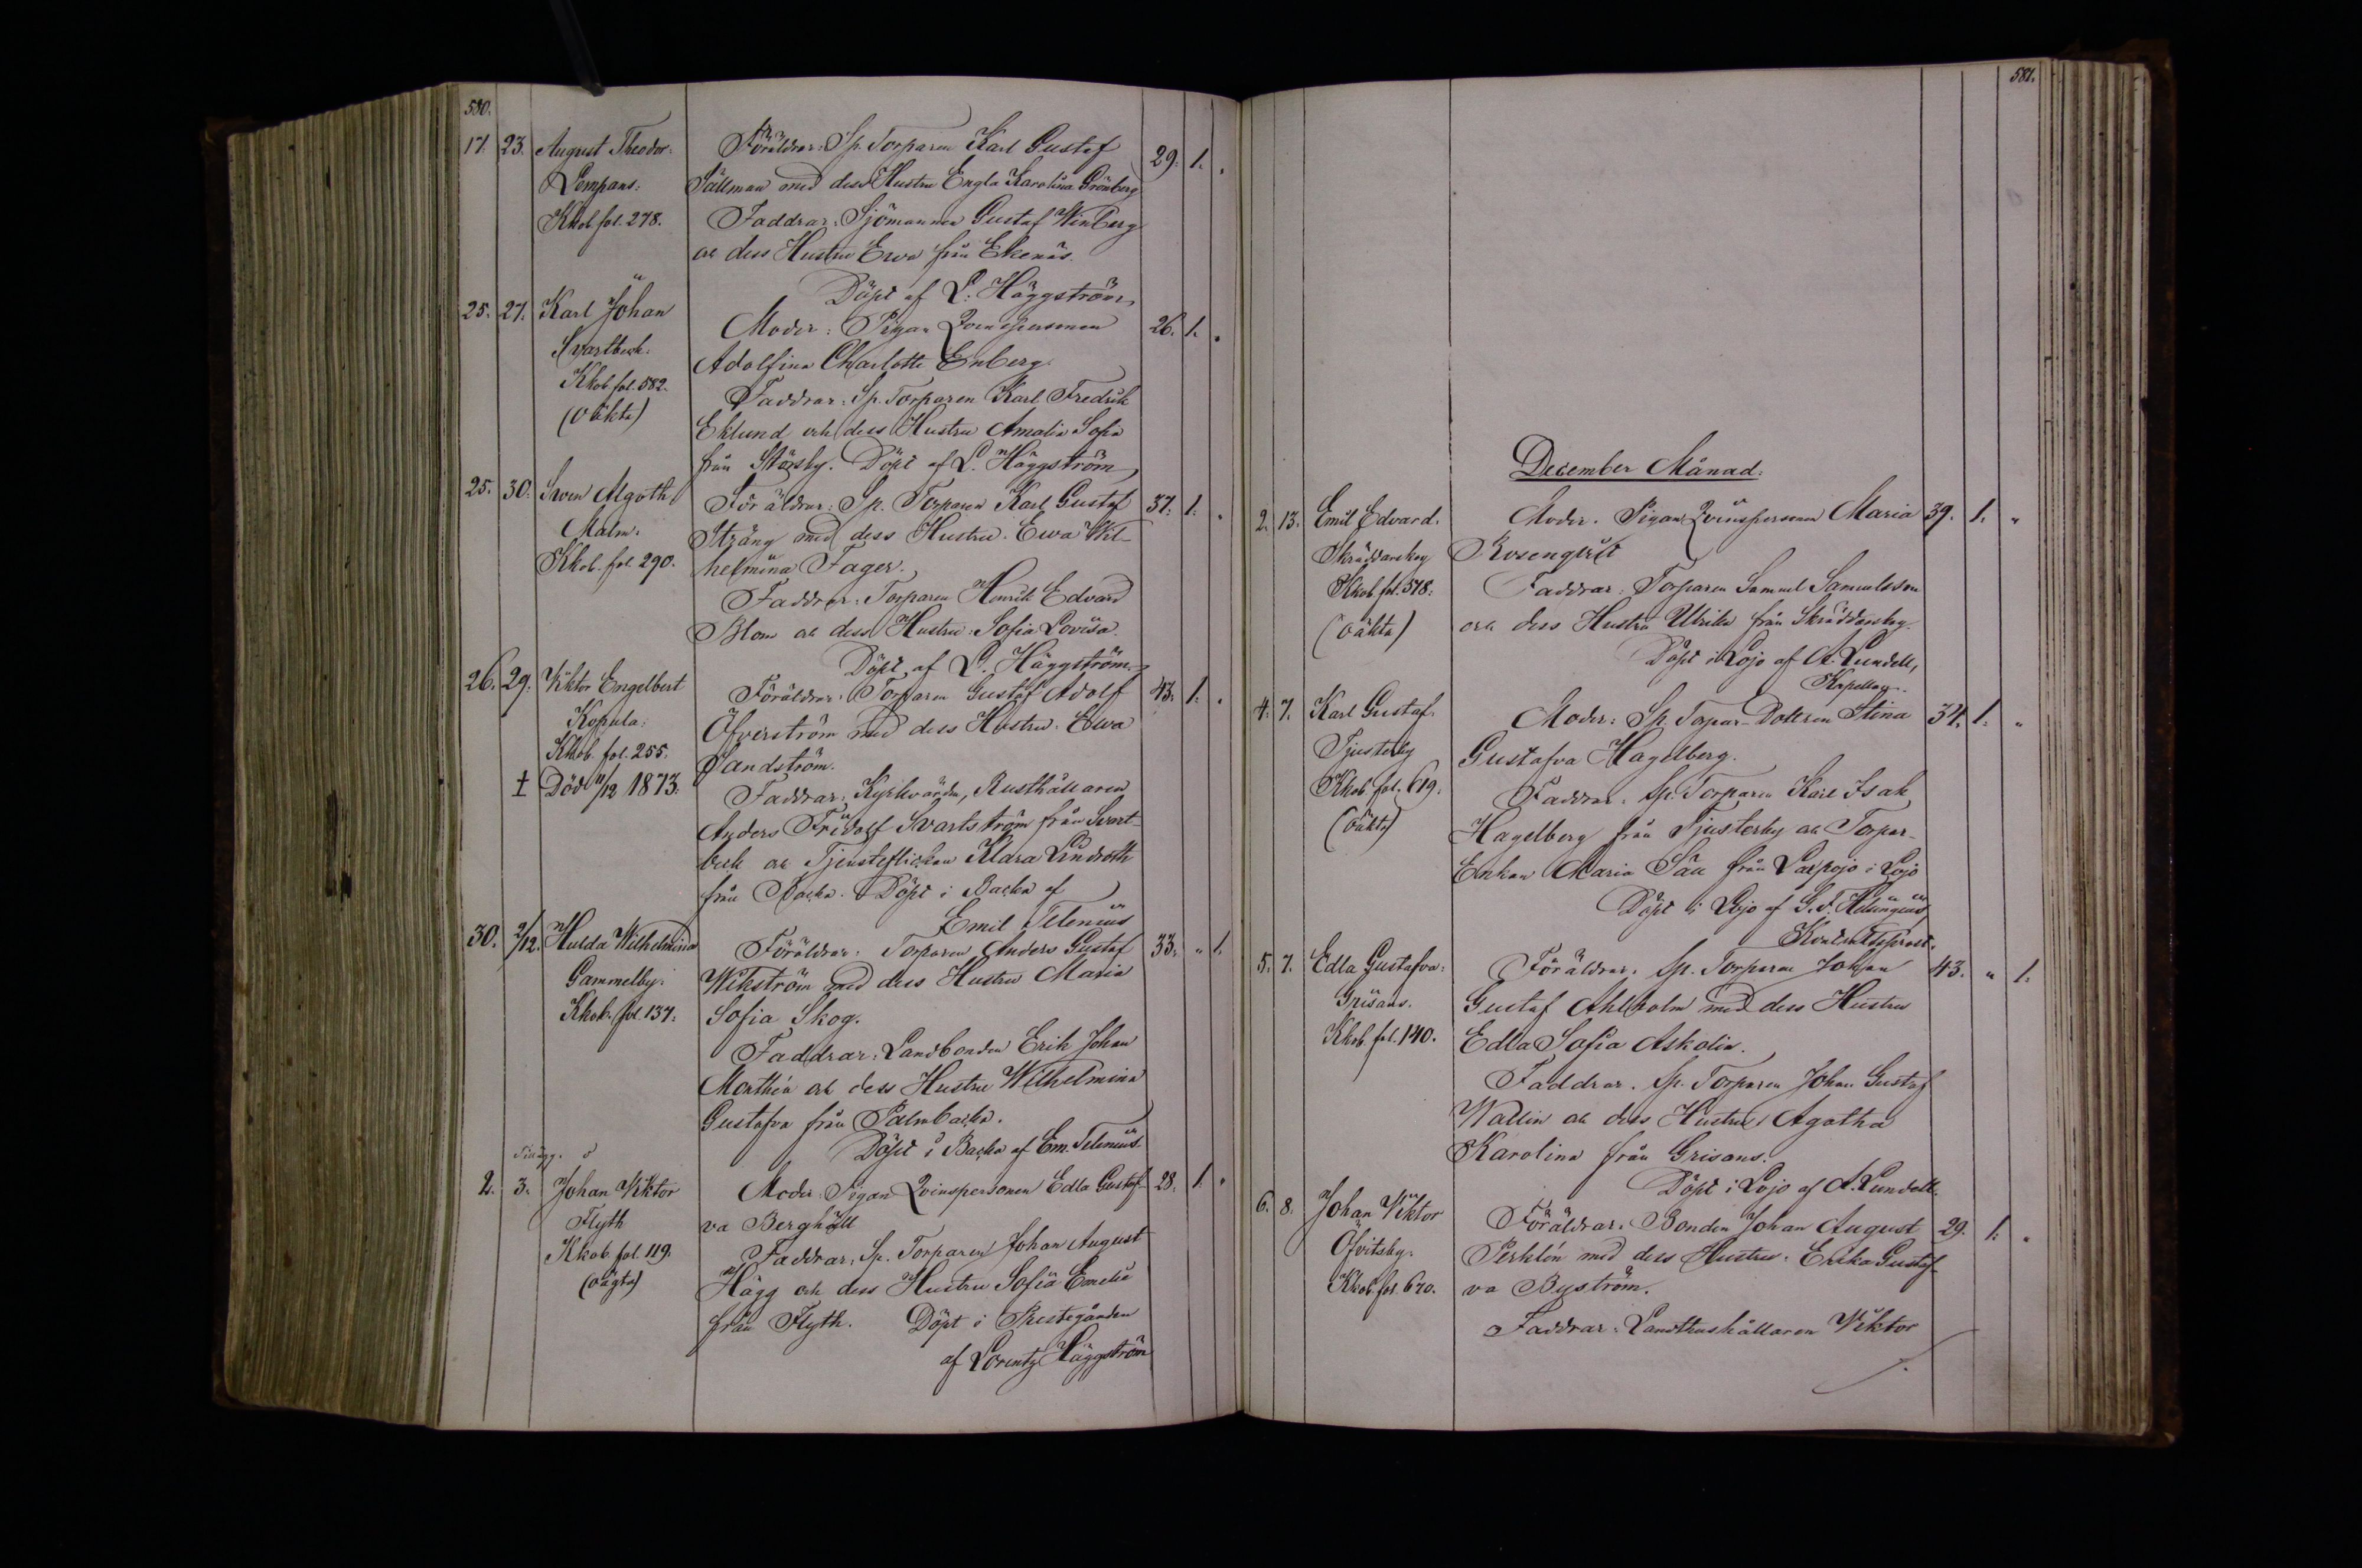 580.
17. 23. August Theodor. Föräldrar: Sp. Torparen Karl Gustaf 29. 1. "
Lempans: Sällman med dess Hustru Engla Karolina Grönberg
Kkob fol. 278. Faddrar: Sjömannen Gustaf Winberg
och dess Hustru Ewa från Ekenäs.
Döpt af L: Häggström
25. 27. Karl Johan Moder: Pigan Qvinspersonen 26. 1. "
Svartbeck: Adolfina Charlotte Enberg
Kkob fol. 582. Faddrar: Sp. Torparen Karl Fredrik
(oäkta) Eklund och dess Hustru Amalia Sofia
från Störsby. Döpt af L. Häggström
25. 30. Sven Algoth Föräldrar: Sp. Torparen Karl Gustaf 37. 1. "
Malm. Sträng med dess Hustru Ewa Wil-
Kkob. fol. 290. helmina Fager.
Faddrar: Torparen Henrik Edvard
Blom och dess Hustru Sofia Lovisa.
Döpt af L. Häggström.
26. 29. Viktor Engelbert Föräldrar: Torparen Gustaf Adolf 43. 1. "
Kopula: Öfverström med dess Hustru Ewa
Kkob. fol. 255. Sandström.
‡ Död 11/12 1873. Faddrar: Kyrkvärden, Rusthållaren
Anders Fridolf Svartström från Svart-
beck och Tjensteflickan Klara Lindroth
från Backa. Döpt i Backa af
Emil Telenius
30. 2/12. Hulda Wilhelmina Föräldrar: Torparen Anders Gustaf 33. " 1.
Gammelby. Wikström med dess Hustru Maria
Kkob. fol. 137. Sofia Skog.
Faddrar: Landbonden Erik Johan
Morthén och dess Hustru Wilhelmina
Gustafva från Palmbacka.
Döpt i Backa af Em. Telenius
Tillägg.
2. 3. Johan Viktor Moder: Pigan Qvinspersonen Edla Gustaf- 28. 1. "
Flyth va Berghäll
Kkob. fol. 119. Faddrar: Sp. Torparen Johan August
(oägta) Hägg och dess Hustru Sofia Emelie
från Flyth. Döpt i Prestegården
af Lorentz Häggström
581.
December Månad.
2. 13. Emil Edvard. Moder. Pigan Qvinspersonen Maria 39. 1. "
Skräddarskog Rosenqvist
Kkob. fol. 578: Faddrar: Torparen Samuel Samuelsson
(oäkta) och dess Hustru Ulrika från Skräddarskog.
Döpt i Lojo af A. Lundell,
Kapellan.
4. 7. Karl Gustaf. Moder: Sp. Torpar-Dottren Stina 34. 1. "
Tjusterby Gustafva Hagelberg.
Kkob. fol. 619. Faddrar. Sp. Torparen Karl Isak
(oäkta) Hagelberg från Tjusterby och Torpar-
Enkan Maria från i Lojo
Döpt i Lojo af G. F. Helsingius
Kontraktsprost.
5. 7. Edla Gustafva: Föräldrar. Sp. Torparen Johan 43. " 1.
Grisans. Gustaf Ahlholm med dess Hustru
Kkob. fol. 140. Edla Sofia Askolin.
Faddrar. Sp. Torparen Johan Gustaf
Wallin och dess Hustru Agatha
Karolina från Grisans.
Döpt i Lojo af A. Lundell.
6. 8. Johan Viktor Föräldrar: Bonden Johan August 29. 1. "
Öfvitsby. Perklén med dess Hustru. Erika Gustaf-
Kkob. fol. 620. va Byström.
Faddrar: Landthushållaren Viktor